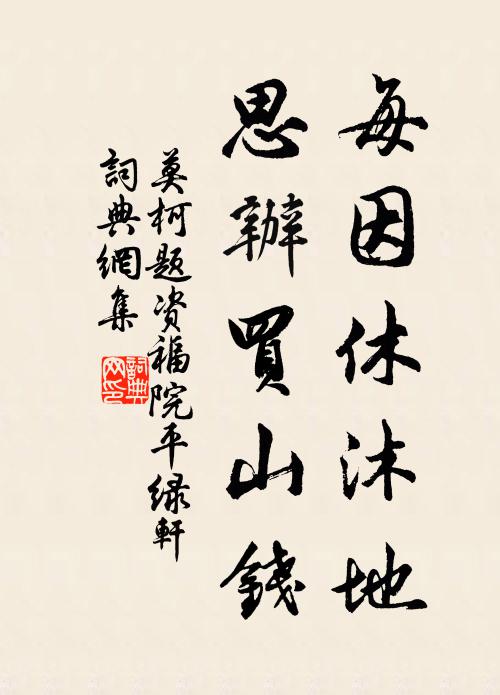 每因休沐地
思辦買山錢
莫柯题资福院平绿軒
詞典網集
詞典
网印